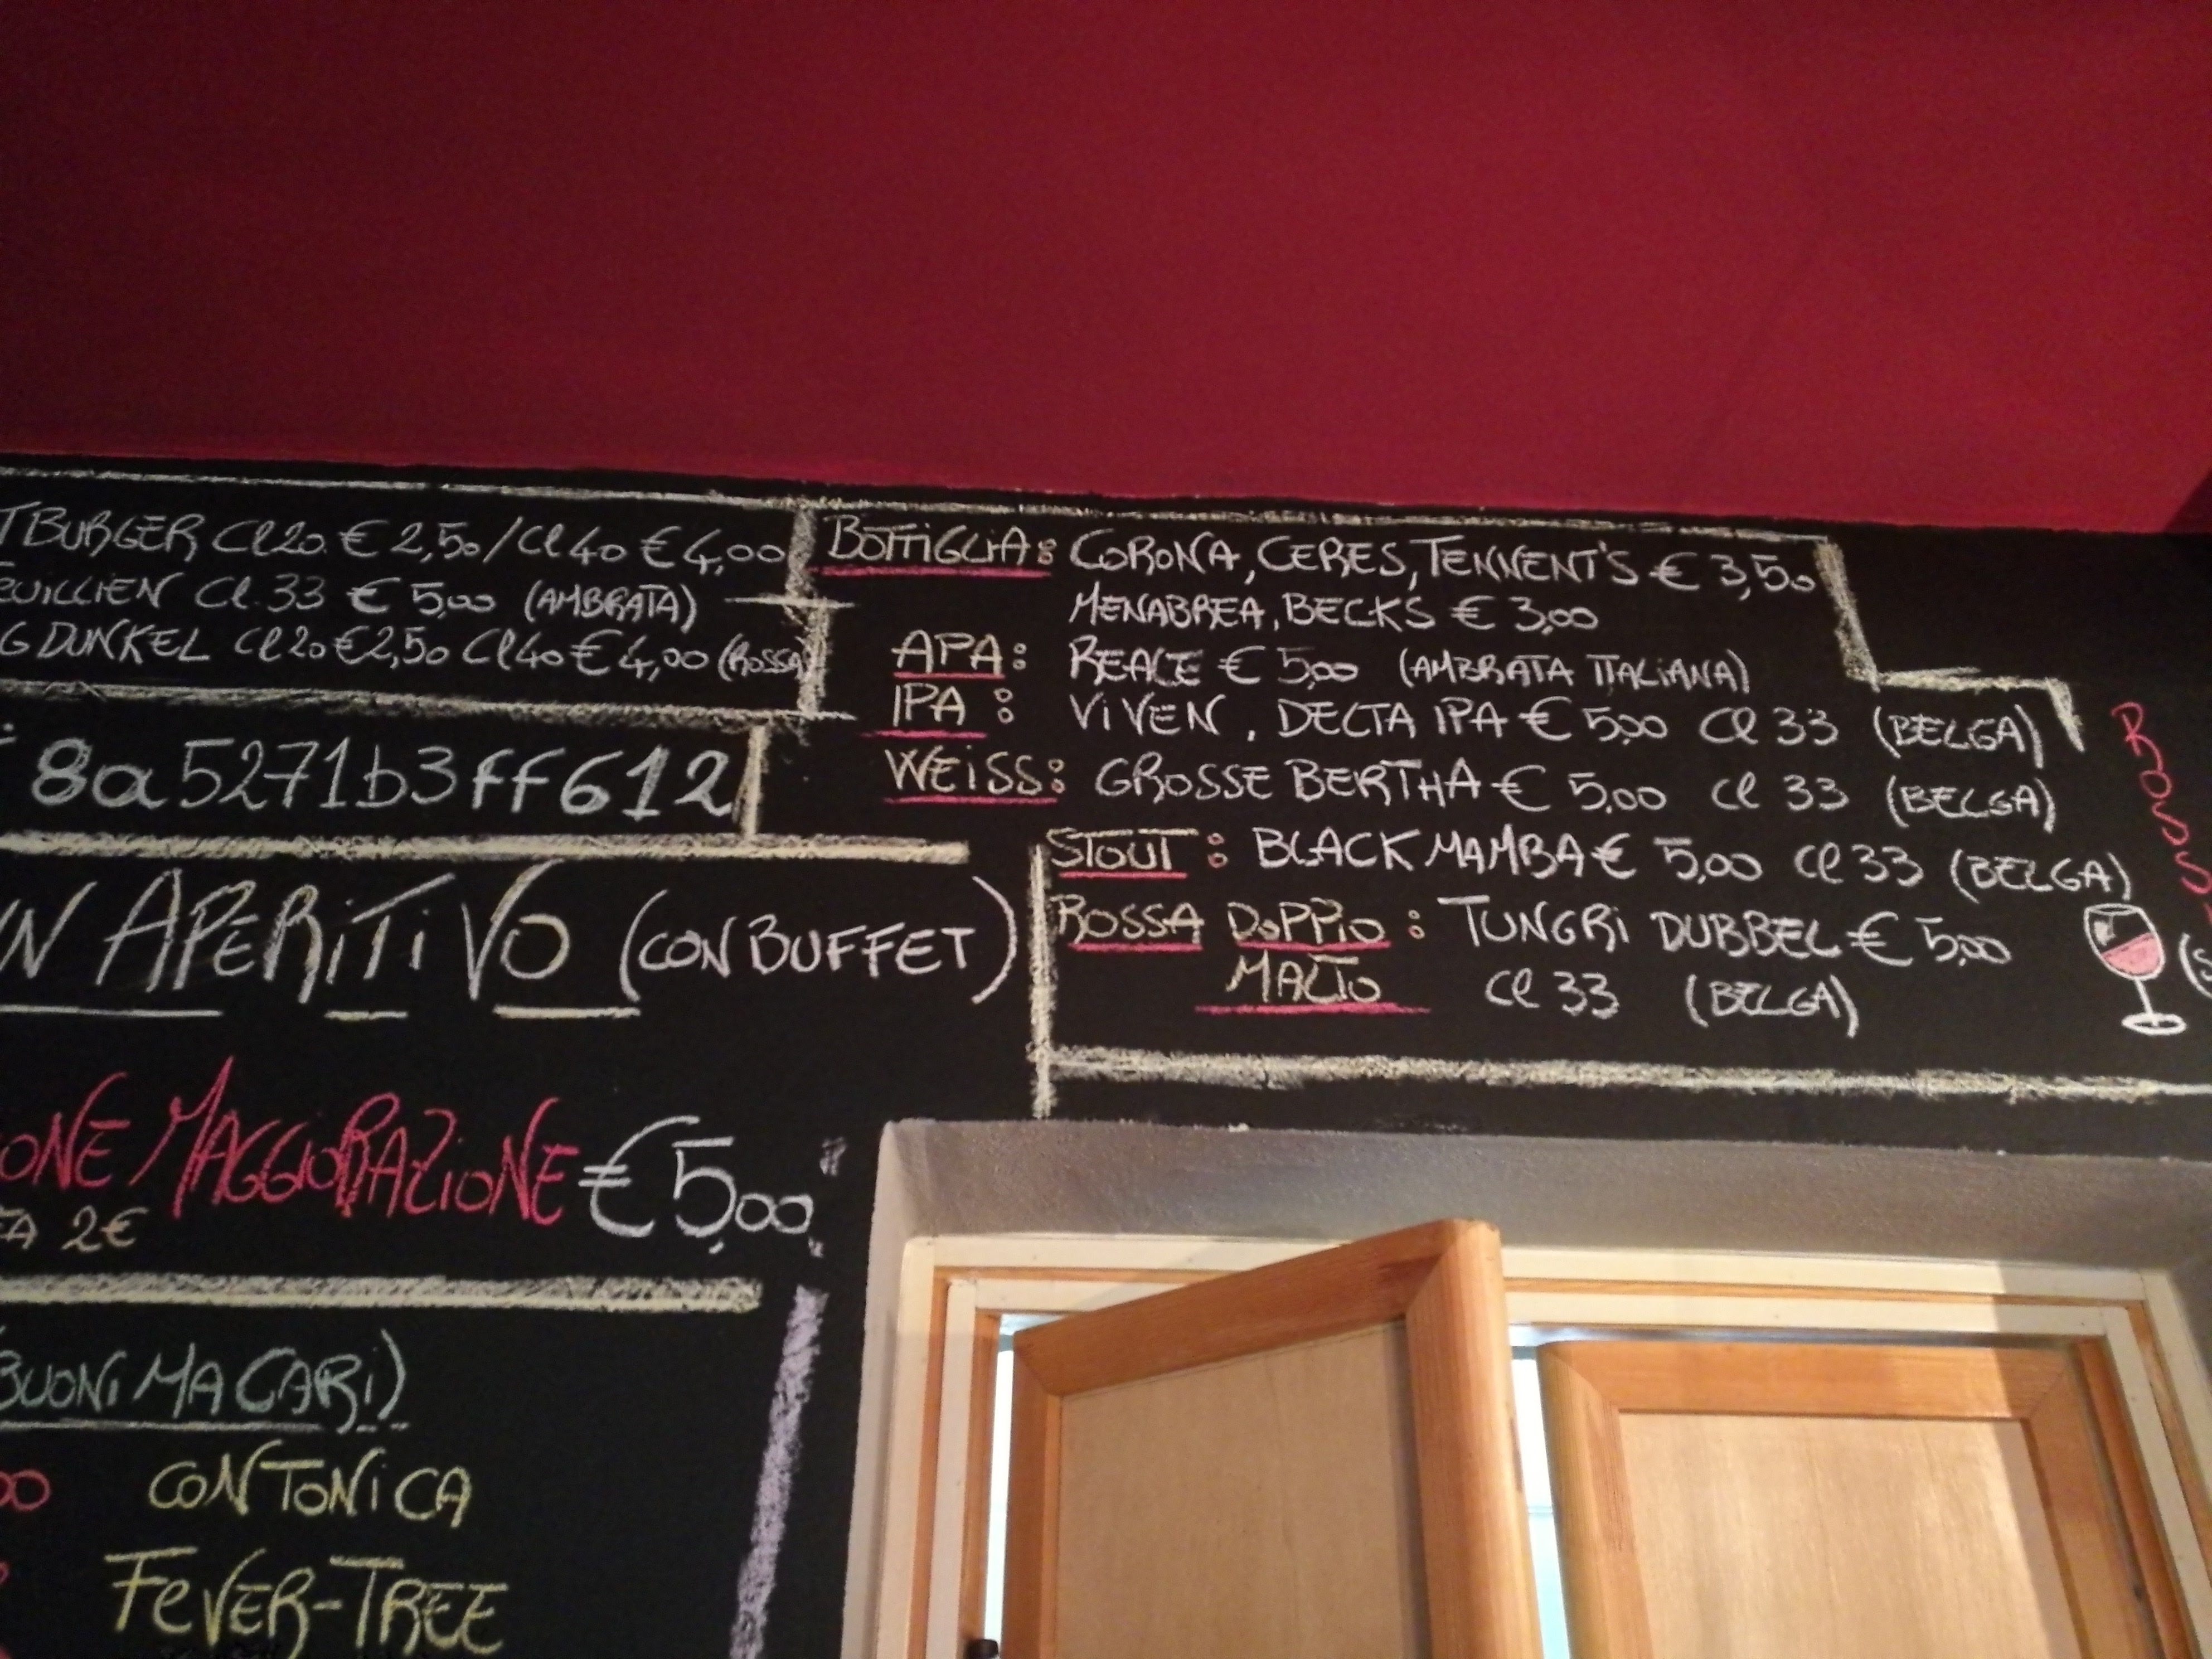 TBURGER Cl 20 € 2,50 / Cl 40 € 4,00
Cl. 33 € 5,00 (AMBRATA)
G DUNKEL Cl 20 € 2,50 Cl 40 € 4,00 (ROSSA)
8a5271b3ff612
APERITIVO (CON BUFFET)
ONE MAGGIORAZIONE € 5,00
2€
(BUONI MA CARI)
CON TONICA
FEVER-TREE
BOTTIGLIA: CORONA, CERES, TENNENT'S € 3,50
MENABREA, BECKS € 3,00
APA: REALE € 5,00 (AMBRATA ITALIANA)
IPA: VIVEN, DELTA IPA € 5,00 Cl 33 (BELGA)
WEISS: GROSSE BERTHA € 5,00 Cl 33 (BELGA)
STOUT: BLACK MAMBA € 5,00 Cl 33 (BELGA)
ROSSA DOPPIO: TUNGRI DUBBEL € 5,00
MALTO Cl 33 (BELGA)
ROSS